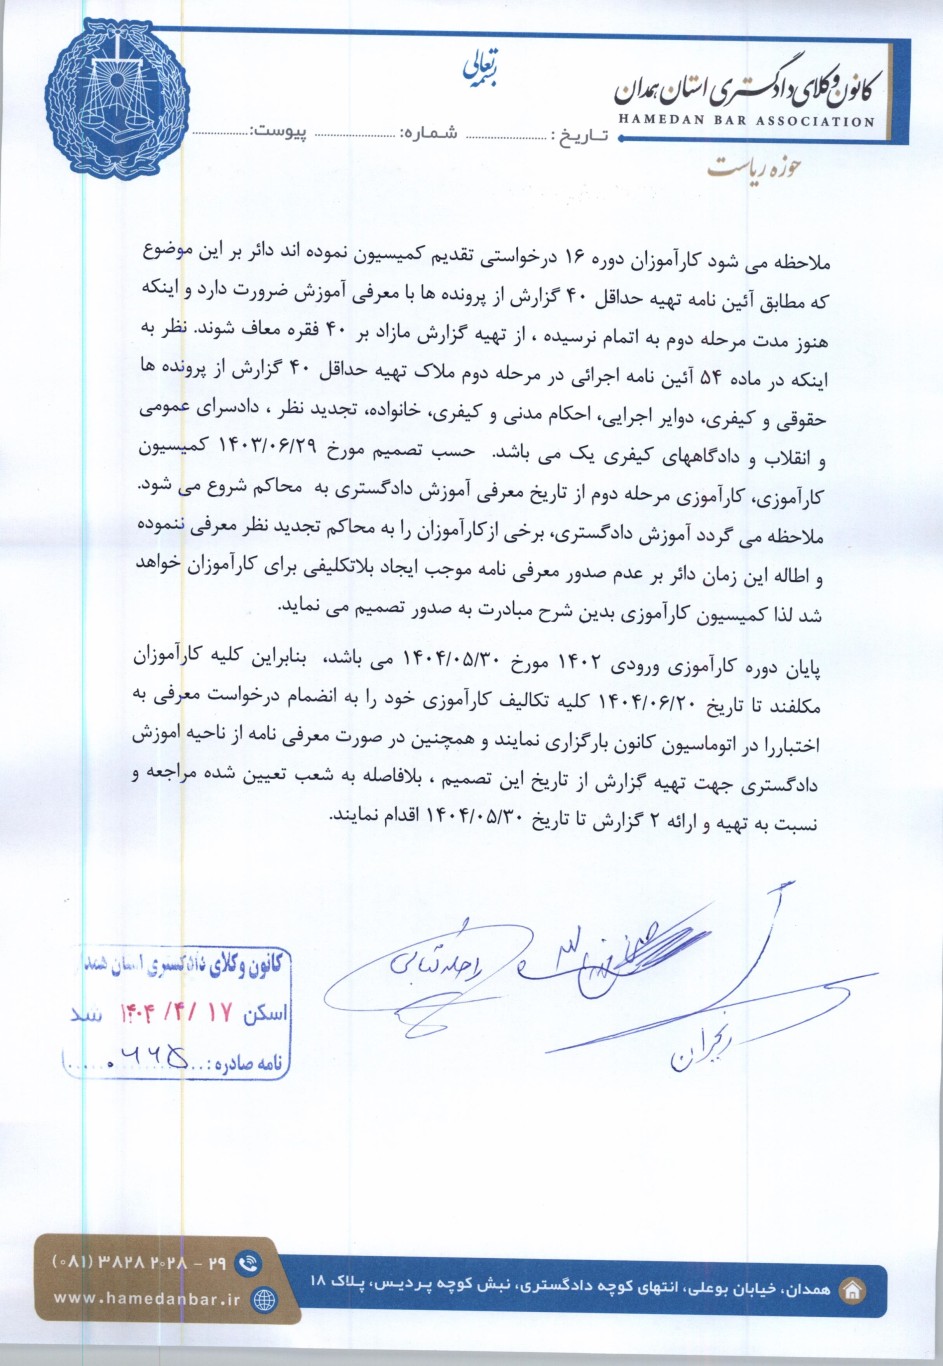 بسمه تعالی
کانون وکلای دادگستری استان همدان
HAMEDAN BAR ASSOCIATION
تاریخ : .................... شماره: .................... پیوست: ....................
حوزه ریاست
ملاحظه می شود کارآموزان دوره ۱۶ درخواستی تقدیم کمیسیون نموده اند دائر بر این موضوع
که مطابق آئین نامه تهیه حداقل ۴۰ گزارش از پرونده ها با معرفی آموزش ضرورت دارد و اینکه
هنوز مدت مرحله دوم به اتمام نرسیده ، از تهیه گزارش مازاد بر ۴۰ فقره معاف شوند. نظر به
اینکه در ماده ۵۴ آئین نامه اجرائی در مرحله دوم ملاک تهیه حداقل ۴۰ گزارش از پرونده ها
حقوقی و کیفری، دوایر اجرایی، احکام مدنی و کیفری، خانواده، تجدید نظر ، دادسرای عمومی
و انقلاب و دادگاههای کیفری یک می باشد. حسب تصمیم مورخ ۱۴۰۳/۰۶/۲۹ کمیسیون
کارآموزی، کارآموزی مرحله دوم از تاریخ معرفی آموزش دادگستری به محاکم شروع می شود.
ملاحظه می گردد آموزش دادگستری، برخی ازکارآموزان را به محاکم تجدید نظر معرفی ننموده
و اطاله این زمان دائر بر عدم صدور معرفی نامه موجب ایجاد بلاتکلیفی برای کارآموزان خواهد
شد لذا کمیسیون کارآموزی بدین شرح مبادرت به صدور تصمیم می نماید.
پایان دوره کارآموزی ورودی ۱۴۰۲ مورخ ۱۴۰۴/۰۵/۳۰ می باشد، بنابراین کلیه کارآموزان
مکلفند تا تاریخ ۱۴۰۴/۰۶/۲۰ کلیه تکالیف کارآموزی خود را به انضمام درخواست معرفی به
اختباررا در اتوماسیون کانون بارگزاری نمایند و همچنین در صورت معرفی نامه از ناحیه اموزش
دادگستری جهت تهیه گزارش از تاریخ این تصمیم ، بلافاصله به شعب تعیین شده مراجعه و
نسبت به تهیه و ارائه ۲ گزارش تا تاریخ ۱۴۰۴/۰۵/۳۰ اقدام نمایند.
رنجبران
کانون وکلای دادگستری استان همدان
اسکن ۱۴۰۴ /۴/ ۱۷ شد
نامه صادره :
همدان، خیابان بوعلی، انتهای کوچه دادگستری، نبش کوچه پردیس، پلاک ۱۸
(۰۸۱) ۳۸۲۸ ۲۰۲۸ – ۲۹
www.hamedanbar.ir